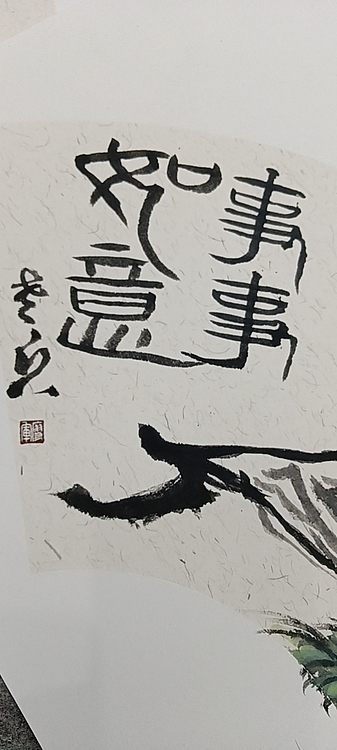 事事
如意